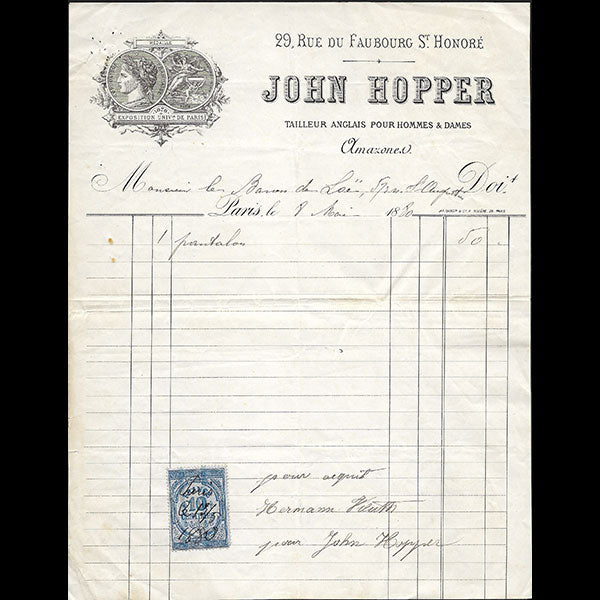 29, RUE DU FAUBOURG ST. HONORÉ
JOHN HOPPER
TAILLEUR ANGLAIS POUR HOMMES & DAMES
Amazones.
1878
EXPOSITION UNIV.LE DE PARIS
Monsieur le Baron de Doit
Paris, le 8 Mai 1880
1 pantalon 50 -
10
Paris
1880
pour acquit
Hermann
pour John Hopper